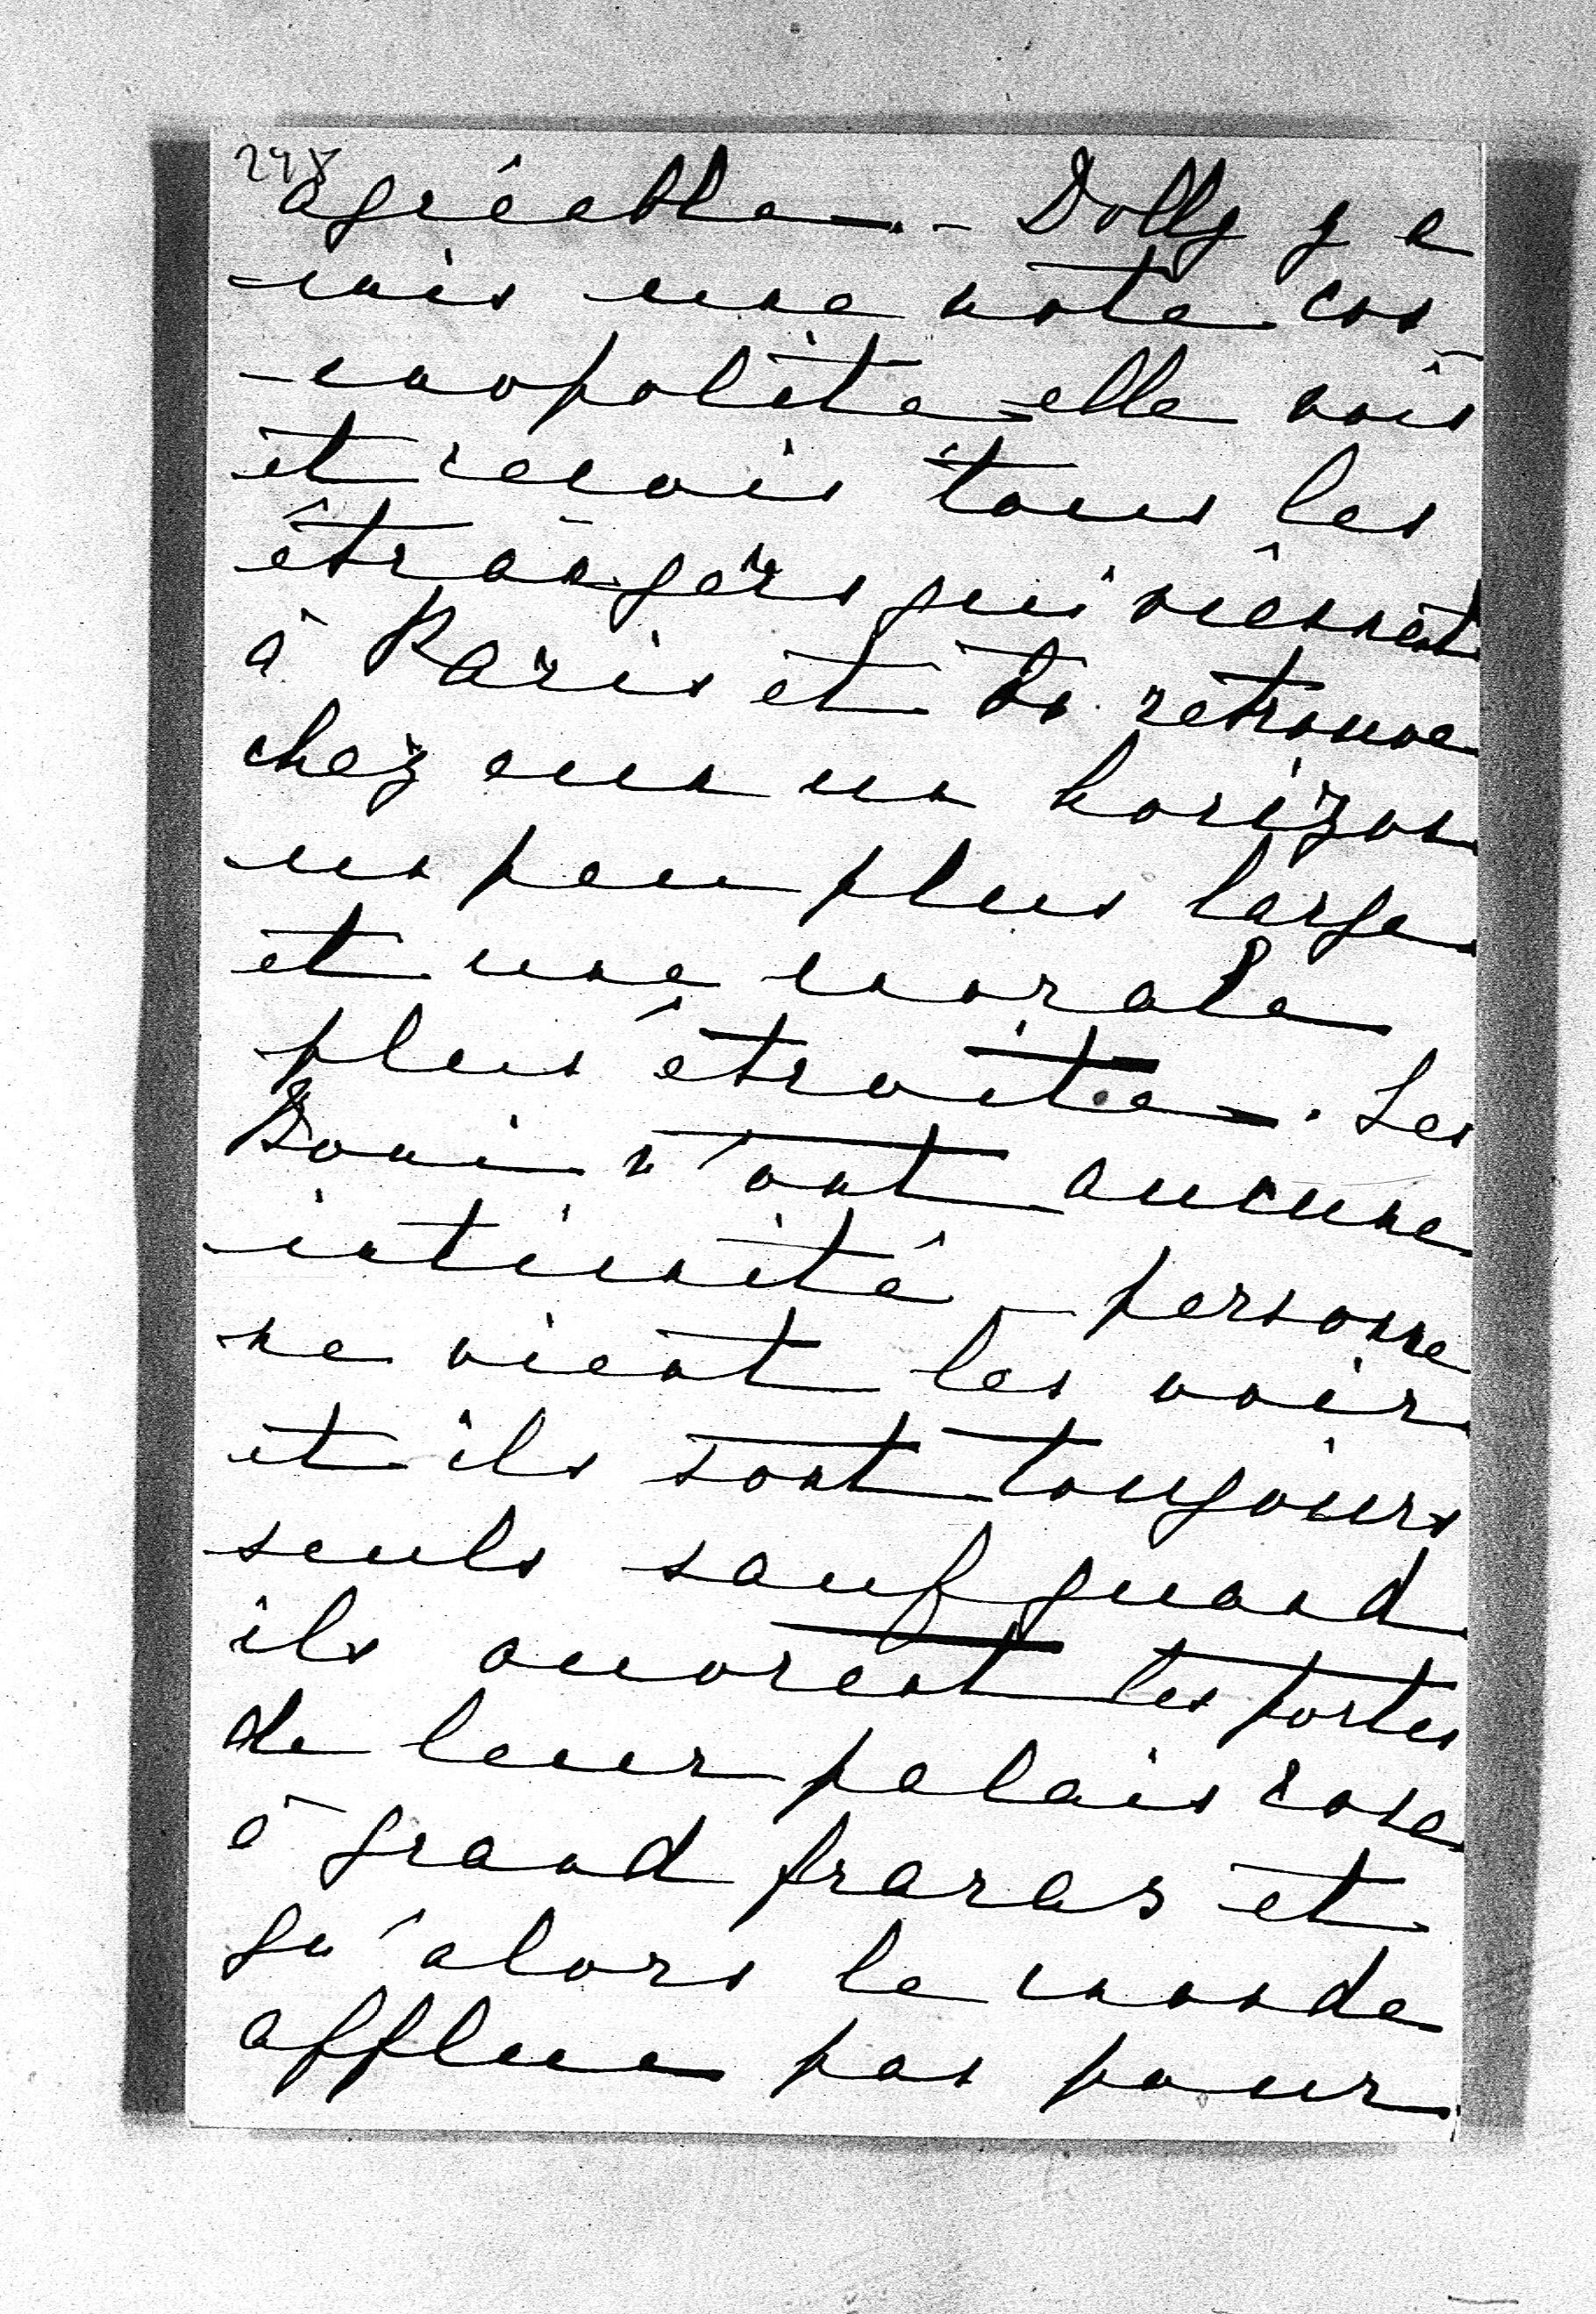 298
agréable. - Dolly y a
mis une note cos
-mopolite - elle voit
et recois tous les
étrangers qui viennent
à Paris et se retrouve
chez eux un horizon
un peu plus large
et une morale
plus étroite. Les
Boni n'ont aucune
intimité - personne
ne vient les voir
et ils sont toujours
seuls sauf quand
ils ouvrent les portes
de leur palais rose
à grand fracas et
qu'alors le monde
afflue pas pour